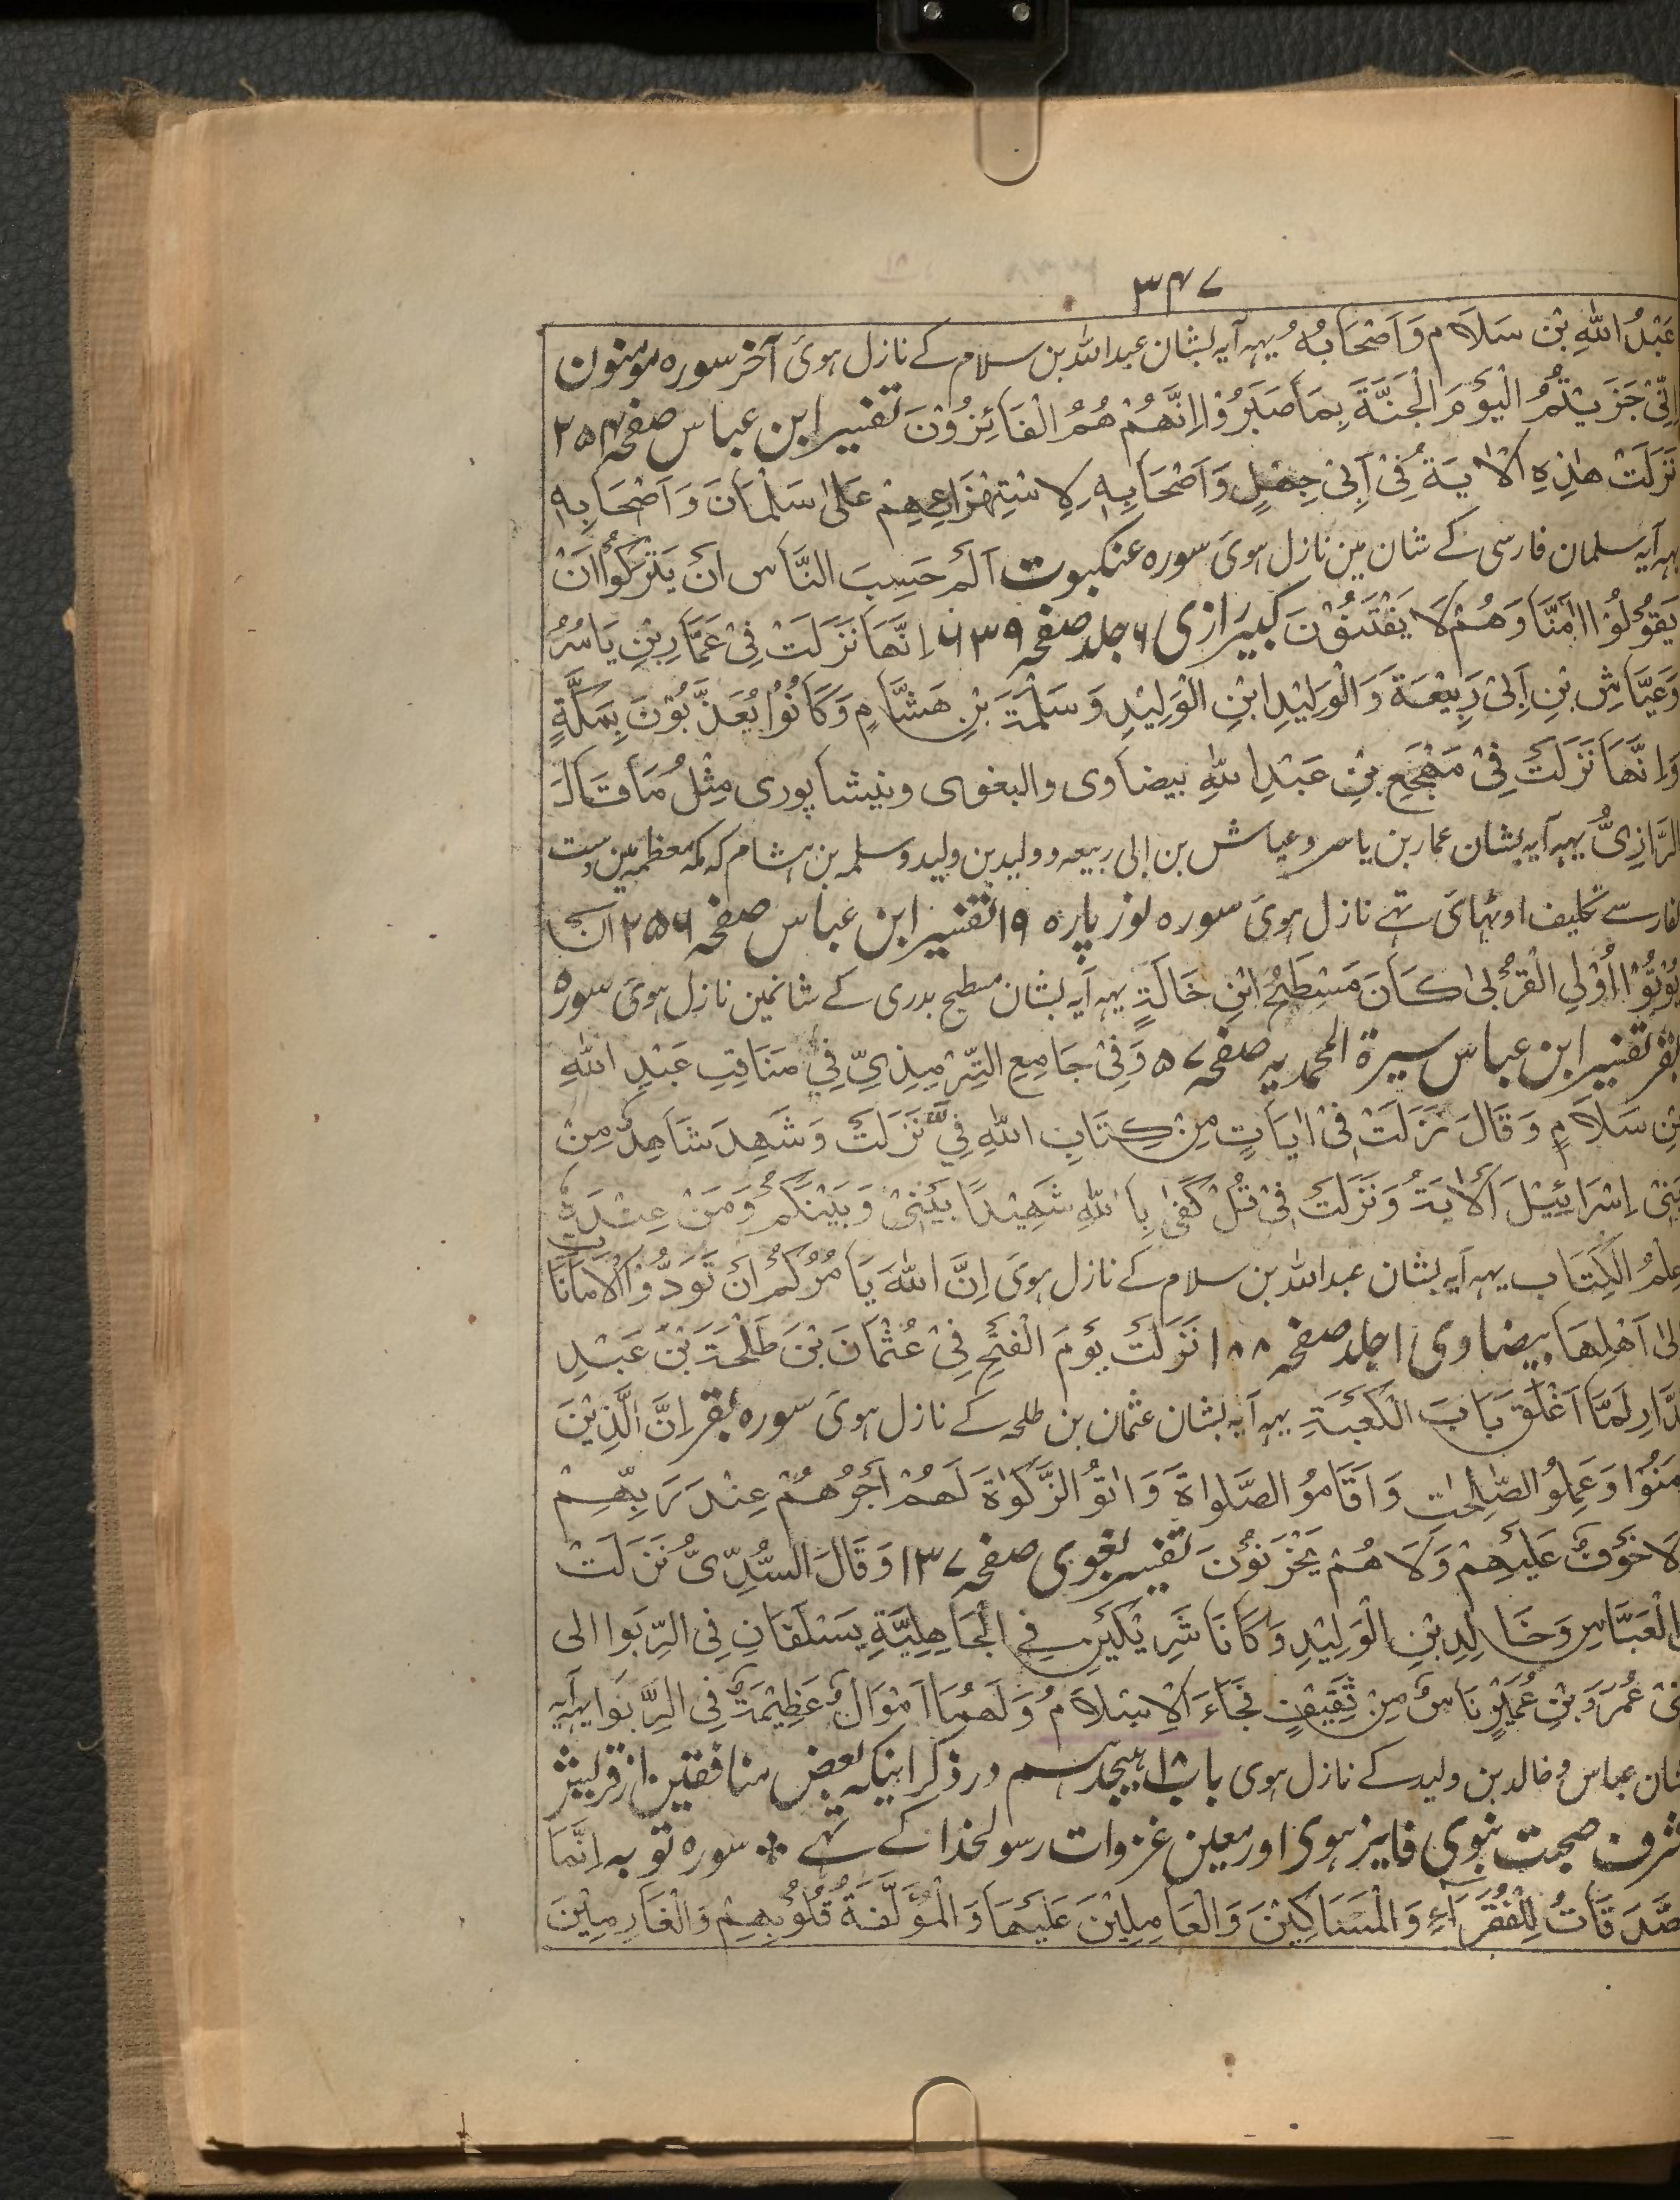 ۳۴۷
عَبْدُ اللّٰهِ بْنُ سَلَام وَاَصْحَابُهُ یہہ آیہ بشان عبداللہ بن سلام کے نازل ہوئی آخر سورہ مومنون
اِنِّیْ جَزَیْتُهُمُ الْیَوْمَ الْجَنَّةَ بِمَا صَبَرُوْا اِنَّهُمْ هُمُ الْفَائِزُوْنَ تفسیر ابن عباس صفحہ ۲۵۴
نَزَلَتْ هٰذِهِ الْاٰیَةُ فِیْ اَبِیْ جَهْلٍ وَاَصْحَابِهٖ لِاسْتِهْزَاءِهِمْ عَلٰی سَلْمَانَ وَاَصْحَابِهٖ
یہہ آیہ سلمان فارسی کے شان مین نازل ہوئی سورہ عنکبوت آلٓمٓ حَسِبَ النَّاسُ اَنْ یَتْرَکُوْا اَنْ
یَقُوْلُوْا اٰمَنَّا وَهُمْ لَا یُفْتَنُوْنَ کبیر رازی ۶ جلد صفحہ ۶۳۹ اِنَّهَا نَزَلَتْ فِیْ عَمَّارِ بْنِ یَاسِرُ
وَعَیَّاشِ بْنِ اَبِیْ رَبِیْعَةَ وَالْوَلِیْدِ ابْنِ الْوَلِیْدِ وَسَلْمَةَ بْنِ هَشَّامٍ وَکَانُوْا یُعَذَّبُوْنَ بِمَکَّةٍ
وَاِنَّهَا نَزَلَتْ فِیْ مَهْجَعِ بْنِ عَبْدِ اللّٰهِ بیضاوی والبغوی ونیشاپوری مِثْلُ مَا قَالَ
الرَّازِیُّ یہہ آیہ بشان عمار بن یاسر و عیاش بن ابی ربیعہ و ولید بن ولید و سلمہ بن ہشام کہ مکہ معظمہ مین دست
کفار سے تکلیف اوٹھائی تہے نازل ہوئی سورہ نور پارہ ۱۹ تفسیر ابن عباس صفحہ ۲۵۶ اَنْ
یُوْتُوْا اُوْلِی الْقُرْبٰی کَانَ مَسْطَحُ ابْنِ خَالَةٍ یہہ آیہ بشان مسطح بدری کے شانمین نازل ہوئی سورہ
بقر تفسیر ابن عباس سیرة المحمدیہ صفحہ ۵۷ وَفِیْ جَامِعِ التِّرْمِذِیِّ فِیْ مَنَاقِبِ عَبْدِ اللّٰهِ
بْنِ سَلَامٍ وَقَالَ نَزَلَتْ فِیْ اٰیَاتٍ مِنْ کِتَابِ اللّٰهِ فِیَّ نَزَلَتْ وَشَهِدَ شَاهِدٌ مِنْ
بَنِیْ اِسْرَائِیْلَ اَلْاٰیَةُ وَنَزَلَتْ فِیْ قُلْ کَفٰی بِاللّٰهِ شَهِیْدًا بَیْنِیْ وَبَیْنَکُمْ وَمَنْ عِنْدَهٗ
عِلْمُ الْکِتَاب یہہ آیہ بشان عبداللہ بن سلام کے نازل ہوئی اِنَّ اللّٰهَ یَامُرُکُمْ اَنْ تَوَدُّوْا الْاَمَانَاتِ
اِلٰی اَهْلِهَا بیضاوی ۱ جلد صفحہ ۱۸۸ نَزَلَتْ یَوْمَ الْفَتْحِ فِیْ عُثْمَانَ بْنَ طَلْحَةَ بْنَ عَبْدِ
الدَّارِ لَمَّا اَغْلَقَ بَابَ الْکَعْبَةِ یہہ آیہ بشان عثمان بن طلحہ کے نازل ہوئی سورہ بقر اِنَّ الَّذِیْنَ
اٰمَنُوْا وَعَمِلُو الصّٰلِحٰتِ وَاَقَامُو الصَّلٰوةَ وَاٰتَوُ الزَّکٰوةَ لَهُمْ اَجْرُهُمْ عِنْدَ رَبِّهِمْ
لَا خَوْفٌ عَلَیْهِمْ وَلَا هُمْ یَحْزَنُوْنَ تفسیر بغوی صفحہ ۱۳۷ وَقَالَ السُّدِّیُّ نَزَلَتْ
الْعَبَّاسِ وَخَالِدِ بْنِ الْوَلِیْدِ وَکَانَا شَرِیْکَیْنِ فِی الْجَاهِلِیَّةِ یَسْتَلِفَانِ فِی الرِّبَوا الی
بَنِیْ عُمَرَوَ بْنِ عُمَیْرٍ نَاسٌ مِنْ ثَقِیْفٍ فَجَاءَ الْاِسْلَامُ وَلَهُمَا اَمْوَالٌ عَظِیْمَةٌ فِی الرِّبَوا یہہ آیہ
بشان عباس و خالد بن ولید کے نازل ہوی باب ۱۸ ہیجدہم در ذکر اینکہ بعض منافقین از قریش
شرف صحبت نبوی فایز ہوی اور معین غزوات رسولخدا کے تہے ٭ سورہ توبہ اِنَّمَا
الصَّدَقَاتُ لِلْفُقَرَآءِ وَالْمَسَاکِیْنَ وَالْعَامِلِیْنَ عَلَیْهَا وَالْمُؤَلَّفَةُ قُلُوْبُهِمْ وَالْغَارِمِیْنَ